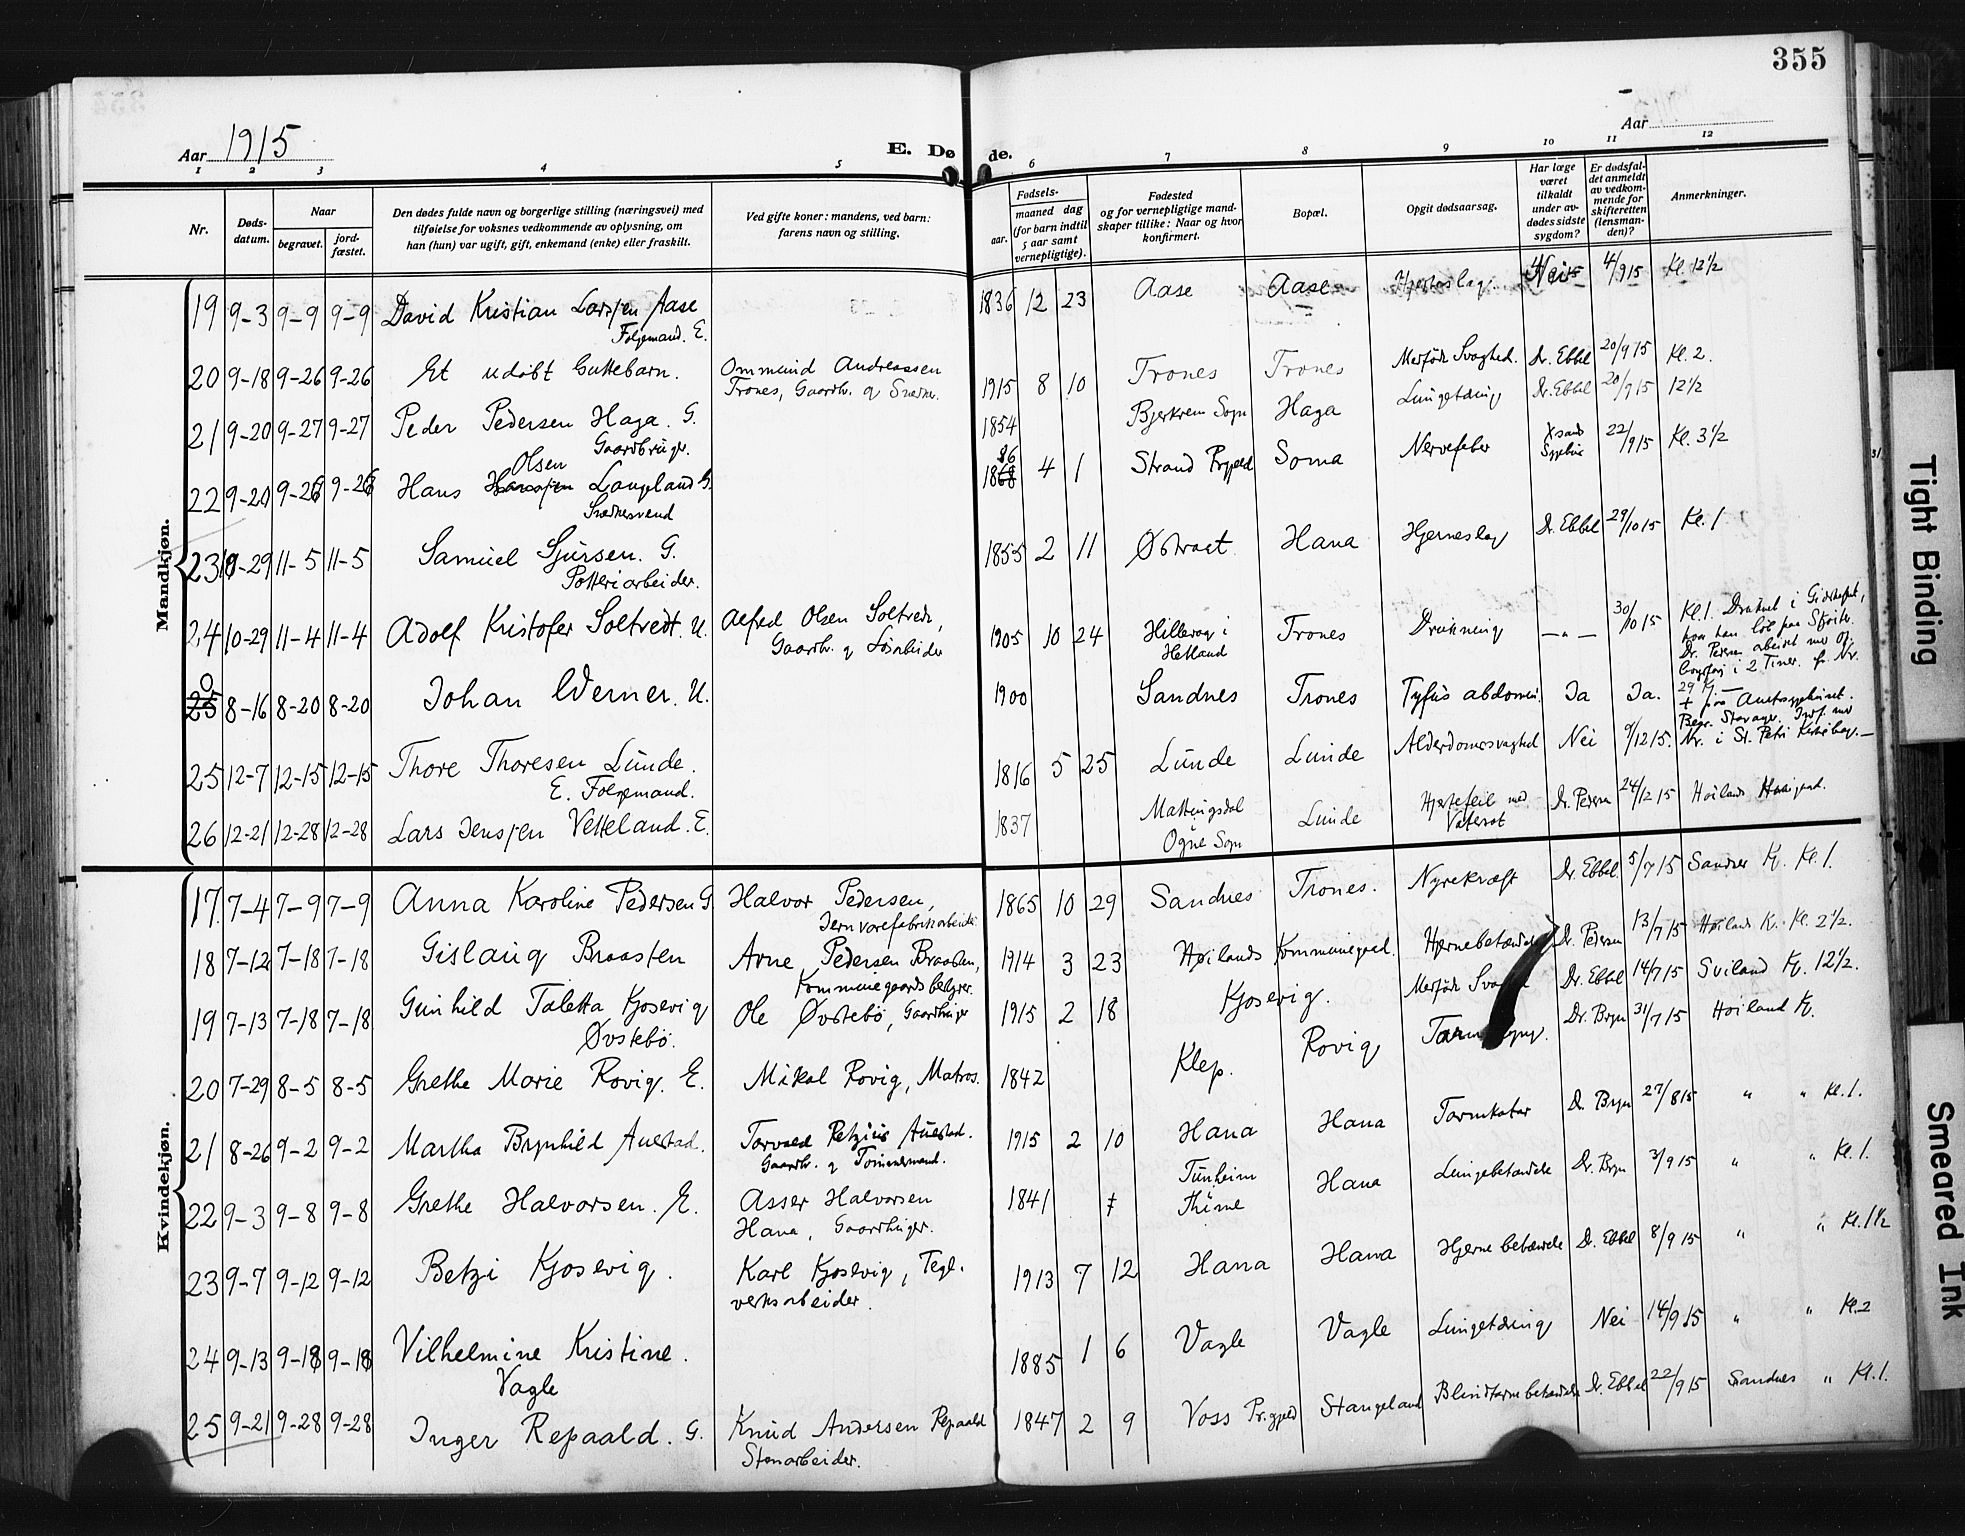 355
Aar 1915
E. Døde.
Aar
1 2 3 4 5 6 7 8 9 10 11 12
Nr.
Døds-datum.
Naar
begravet.
jord-fæstet.
Den dødes fulde navn og borgerlige stilling (næringsvei) med
tilføielse for voksnes vedkommende av oplysning, om
han (hun) var ugift, gift, enkemand (enke) eller fraskilt.
Ved gifte koner: mandens, ved barn:
farens navn og stilling.
Fødsels-
aar.
maaned dag
(for barn indtil
5 aar samt
vernepligtige).
Fødested
og for vernepligtige mand-
skaper tillike: Naar og hvor
konfirmert.
Bopæl.
Opgit dødsaarsag.
Har læge
været
tilkaldt
under av-
dødes sidste
sygdom?
Er dødsfal-
det anmeldt
av vedkom-
mende for
skifteretten
(lensman-
den)?
Anmerkninger.
Mandkjøn.
19 9-3 9-9 9-9 David Kristian Larssen Aase 1836 12 23 Aase Aase Hjerteslag Nei 4/9 15 Kl. 12½
Folgemand. E.
20 9-18 9-26 9-26 Et udöbt Guttebarn. Ommund Andreassen 1915 8 10 Trones Trones Medfödt Svaghed. Dr. Ebbel 20/9 15 Kl. 2.
Trones, Gaardbr. og Snedker.
21 9-20 9-27 9-27 Peder Pedersen Haga. G. 1854 Bjerkrem Sogn Haga Lungetæring Dr. Ebbel 20/9 15 12½
Gaardbruger.
22 9-20 9-26 9-26 Hans Olsen Langeland G. 1886 4 1 Strand Prgjeld Soma Nervefeber 22/9 15 Kl. 3½
Snedkersvend
23 10-29 11-5 11-5 Samuel Sjursen. G. 1855 2 11 Østraat Hana Hjerneslag Dr. Ebbel 29/10 15 Kl. 1
Potteriarbeider.
24 10-29 11-4 11-4 Adolf Kristofer Soltvedt. U. Alfred Olsen Soltvedt, 1905 10 24 Hillevaag i Hetland Trones Drukning — " — 30/10 15 Kl. 1. Druknet i
Gaardbr. og
hvor han
Dr. Pedersen arbeidet med
i 2 Timer.
0 25 8-16 8-20 8-20 Johan Werner. U. 1900 Sandnes Trones Tyfus abdomin. Ja Ja.
+ paa Amtssygehuset.
Begr. Stavanger.
Nr. i St. Petri
25 12-7 12-15 12-15 Thore Thoresen Lunde. 1816 5 25 Lunde Lunde Alderdomssvaghed Nei 9/12 15.
E. Folgemand.
26 12-21 12-28 12-28 Lars Jenssen Vetteland. E. 1837 Mattingsdal Ogne Sogn Lunde Hjertefeil med Vatersot Dr. Pedersen 24/12 15 Höilands
Kvindekjøn.
17. 7-4 7-9 7-9 Anna Karoline Pedersen G Halvor Pedersen, 1865 10 29 Sandnes Trones. Nyrekræft Dr. Ebbel 5/7 15 Sandnes K. Kl. 1.
Jernvarefabrikarbeider
18 7-12 7-18 7-18 Gislaug Braasten Arne Pedersen Braasten, 1914 3 23 Høilands Kommunegaard. Hjernebetændelse Dr. Pedersen 13/7 15 Høilands K. Kl. 2½.
Kommunegaardsbestyrer.
19 7-13 7-18 7-18 Gunhild Taletta Kjosevig Ole Øvstebö, Gaardbruger 1915 2 18 Kjosevig. Medfödt Dr. Ebbel 14/7 15 Sviland K. 12½.
Øvstebö.
20 7-29 8-5 8-5 Grethe Marie Rovig. E. Mikal Rovig, Matros. 1842 Klep. Rovig Dr. Bryn 31/7 15 Höiland K.
21 8-26 9-2 9-2 Martha Brynhild Auestad. Torvald Petzius Auestad. 1915 2 10 Hana Hana Tarmkatar Dr. Bryn 27/8 15 " " Kl. 1.
Gaardbr. og Tömmermand.
22 9-3 9-8 9-8 Grethe Halvorsen. E. Asser Halvorsen 1841 Tunheim Thime Hana Lungebetændelse Dr. Bryn 3/9 15 " " Kl. 1.
Hana, Gaardbruger.
23 9-7 9-12 9-12 Betzi Kjosevig. Karl Kjosevig, Tegl- 1913 7 12 Hana Hana Hjernebetændelse Dr. Ebbel 8/9 15 " " Kl. 1½
verksarbeider.
24 9-13 9-18 9-18 Vilhelmine Kristine. 1885 1 6 Vagle Vagle Lungetæring Nei 14/9 15 " " Kl. 2
Vagle
25 9-21 9-28 9-28 Inger Repaald. G. Knud Andersen Repaald 1847 2 9 Voss Prgjeld Stangeland Blindtarmbetændelse Dr. Ebbel 22/9 15 Sandnes " Kl. 1.
Stenarbeider.
Tight Binding
Smeared Ink